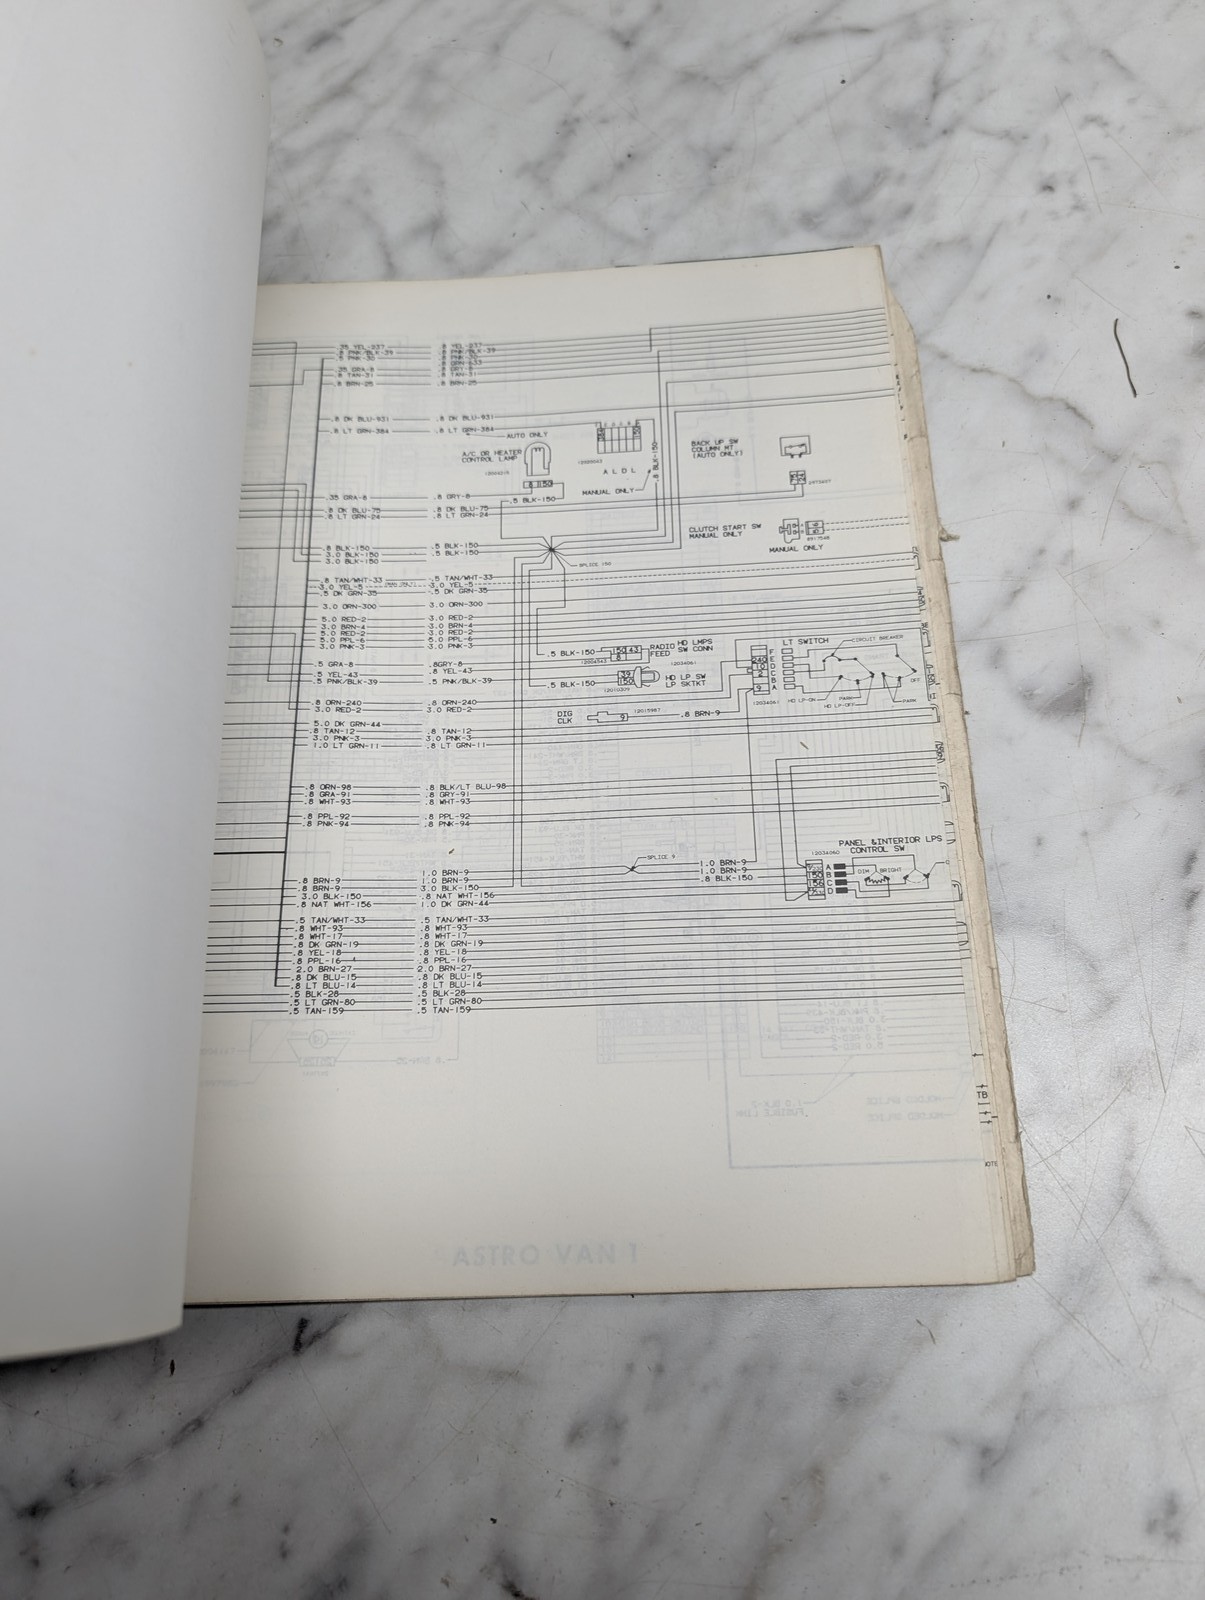 .35 YEL-237 .8 YEL-237
.8 PNK/BLK-39 .8 PNK/BLK-39
.5 PNK-30 .8 PNK-30
.8 ORN-633
.35 GRA-8 .8 GRY-8
.8 TAN-31 .8 TAN-31
.8 BRN-25 .8 BRN-25
.8 DK BLU-931 .8 DK BLU-931
.8 LT GRN-384 .8 LT GRN-384
AUTO ONLY
A/C OR HEATER
CONTROL LAMP
12004319
8 150
384 150
12020043
A L D L
MANUAL ONLY
.8 BLK-150
BACK UP SW
COLUMN MT
(AUTO ONLY)
75 24
2973407
.35 GRA-8 .8 GRY-8
.5 BLK-150
.8 DK BLU-75 .8 DK BLU-75
.8 LT GRN-24 .8 LT GRN-24
CLUTCH START SW
MANUAL ONLY
8917548
MANUAL ONLY
.8 BLK-150 .5 BLK-150
3.0 BLK-150 .5 BLK-150
3.0 BLK-150
SPLICE 150
.8 TAN/WHT-33 .5 TAN/WHT-33
3.0 YEL-5 3.0 YEL-5
.5 DK GRN-35 .5 DK GRN-35
3.0 ORN-300 3.0 ORN-300
5.0 RED-2 3.0 RED-2
3.0 BRN-4 3.0 BRN-4
5.0 RED-2 3.0 RED-2
5.0 PPL-6 5.0 PPL-6
3.0 PNK-3 3.0 PNK-3
.5 BLK-150
150 43
8
12004543
RADIO
FEED
HD LMPS
SW CONN
12034061
LT SWITCH
CIRCUIT BREAKER
.5 GRA-8 .8GRY-8
.5 YEL-43 .8 YEL-43
.5 PNK/BLK-39 .5 PNK/BLK-39
.5 BLK-150
39
150
12010309
HD LP SW
LP SKTKT
240
10
2
9
F
E
D
C
B
A
12034061
HD LP-ON
PARK
HD LP-OFF
PARK
OFF
.8 ORN-240 .8 ORN-240
3.0 RED-2 3.0 RED-2
DIG
CLK
9
12015987
.8 BRN-9
5.0 DK GRN-44
.8 TAN-12 .8 TAN-12
3.0 PNK-3 3.0 PNK-3
1.0 LT GRN-11 .8 LT GRN-11
.8 ORN-98 .8 BLK/LT BLU-98
.8 GRA-91 .8 GRY-91
.8 WHT-93 .8 WHT-93
.8 PPL-92 .8 PPL-92
.8 PNK-94 .8 PNK-94
PANEL &INTERIOR LPS
CONTROL SW
12034060
150
156
A
B
C
D
DIM
BRIGHT
SPLICE 9
1.0 BRN-9
1.0 BRN-9
.8 BLK-150
1.0 BRN-9
.8 BRN-9 1.0 BRN-9
.8 BRN-9 3.0 BLK-150
3.0 BLK-150 .8 NAT WHT-156
.8 NAT WHT-156 1.0 DK GRN-44
.5 TAN/WHT-33 .5 TAN/WHT-33
.8 WHT-93 .8 WHT-93
.8 WHT-17 .8 WHT-17
.8 DK GRN-19 .8 DK GRN-19
.8 YEL-18 .8 YEL-18
.8 PPL-16 .8 PPL-16
2.0 BRN-27 2.0 BRN-27
.8 DK BLU-15 .8 DK BLU-15
.8 LT BLU-14 .8 LT BLU-14
.5 BLK-28 .5 BLK-28
.5 LT GRN-80 .5 LT GRN-80
.5 TAN-159 .5 TAN-159
TB
ASTRO VAN 1